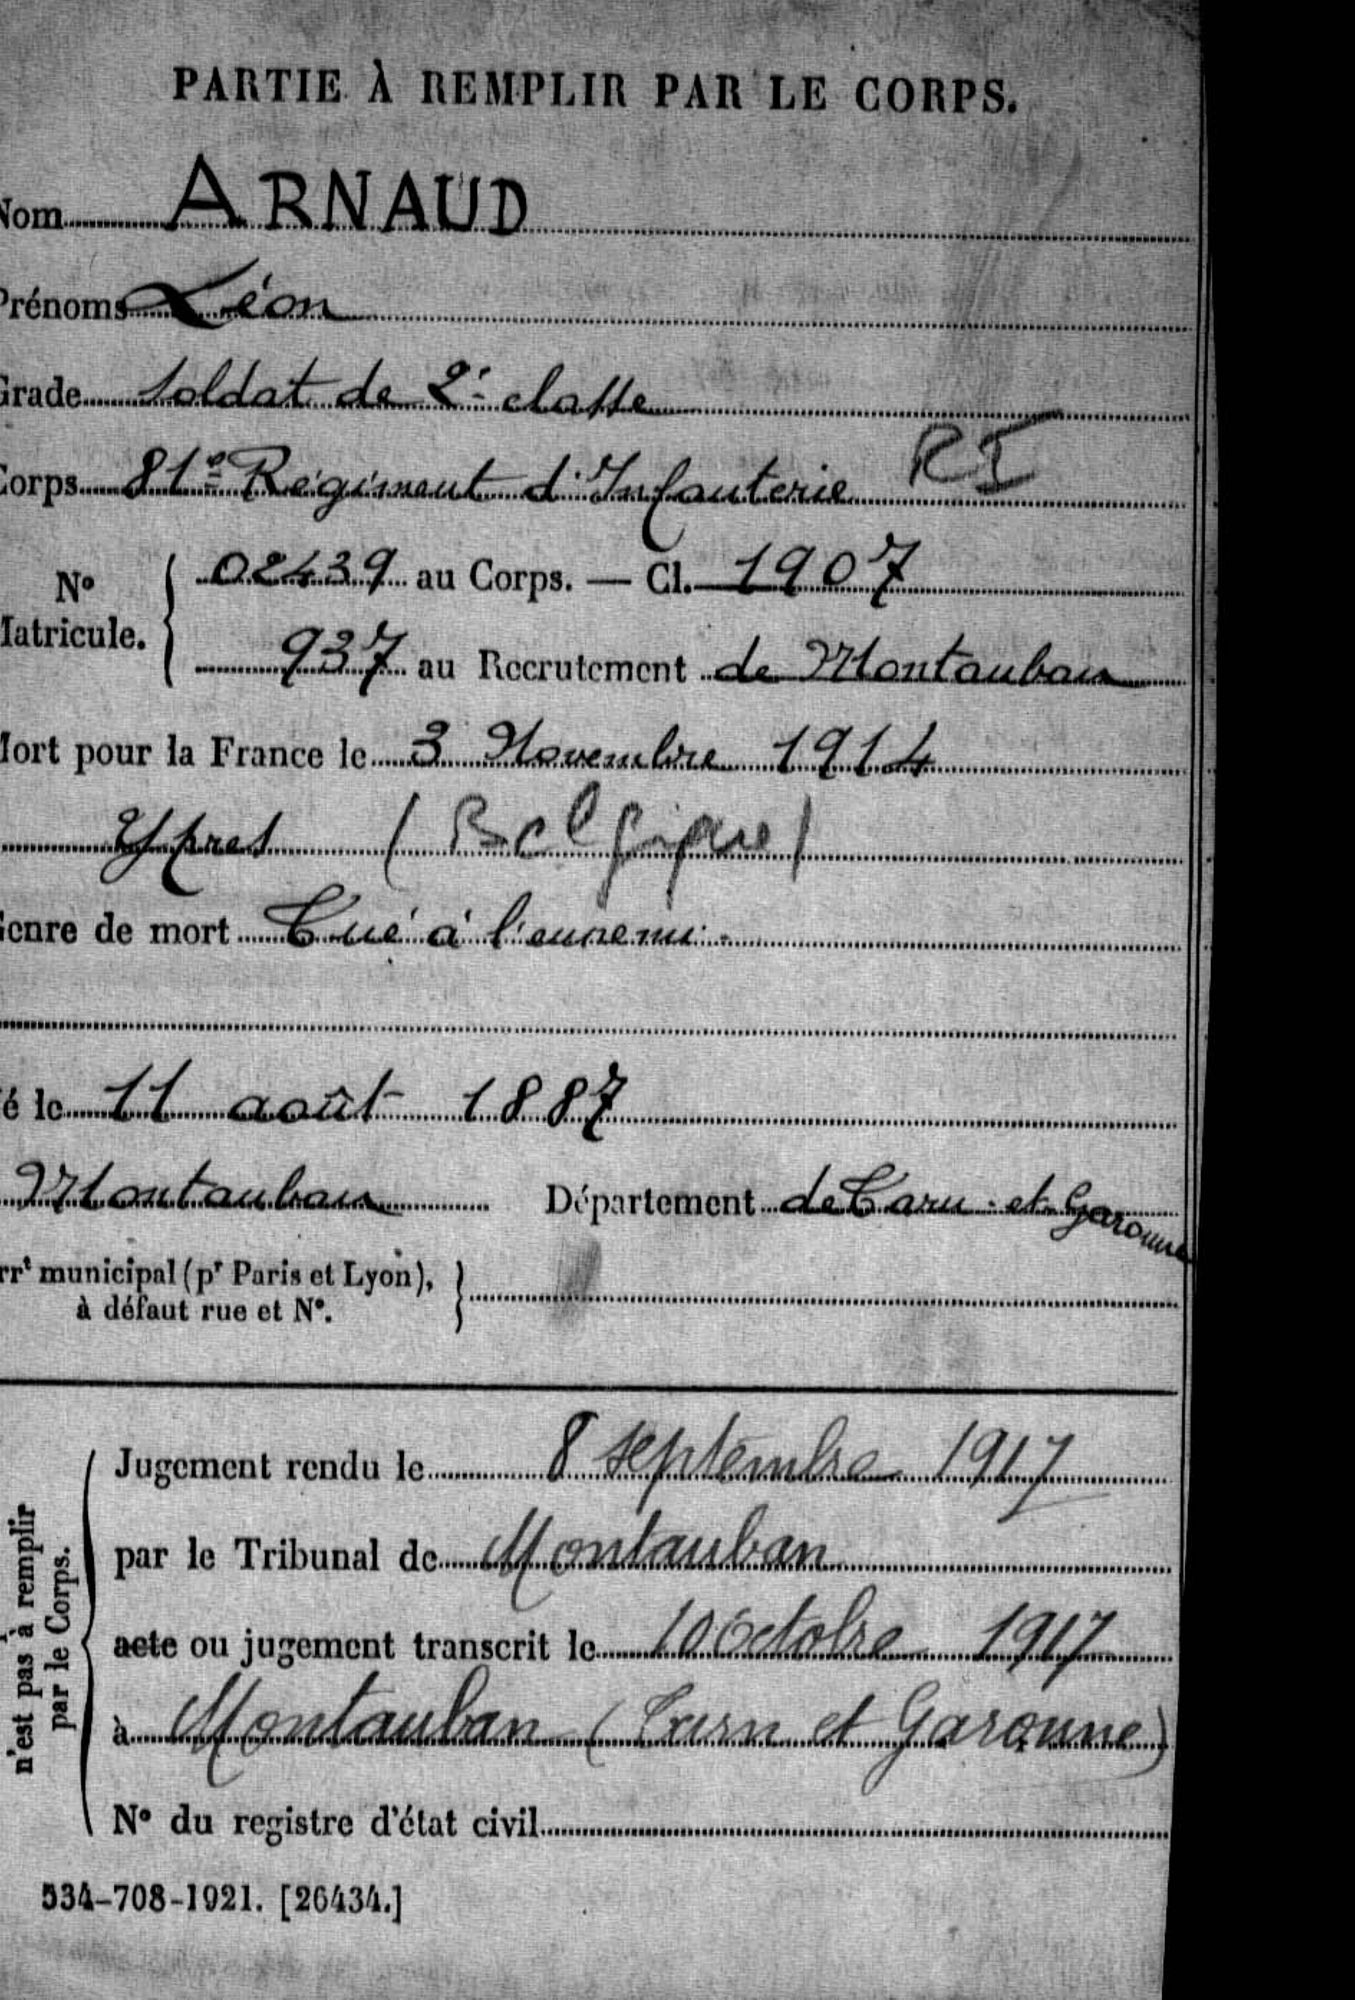 PARTIE À REMPLIR PAR LE CORPS.
Nom ARNAUD
Prénoms Léon
Grade Soldat de 2e classe
Corps 81e Régiment d'Infanterie RI
No 02439 au Corps. — Cl. 1907
Matricule.
937 au Recrutement de Montauban
Mort pour la France le 3 Novembre 1914
Ypres (Belgique)
Genre de mort Tué à l'ennemi
é le 11 août 1887
Montauban Département de Tarn-et-Garonne
rrt municipal (pr Paris et Lyon),
à défaut rue et No.
Jugement rendu le 8 septembre 1917
par le Tribunal de Montauban
acte ou jugement transcrit le 10 octobre 1917
à Montauban (Tarn et Garonne)
No du registre d'état civil
n'est pas à remplir
par le Corps.
534-708-1921. [26434.]